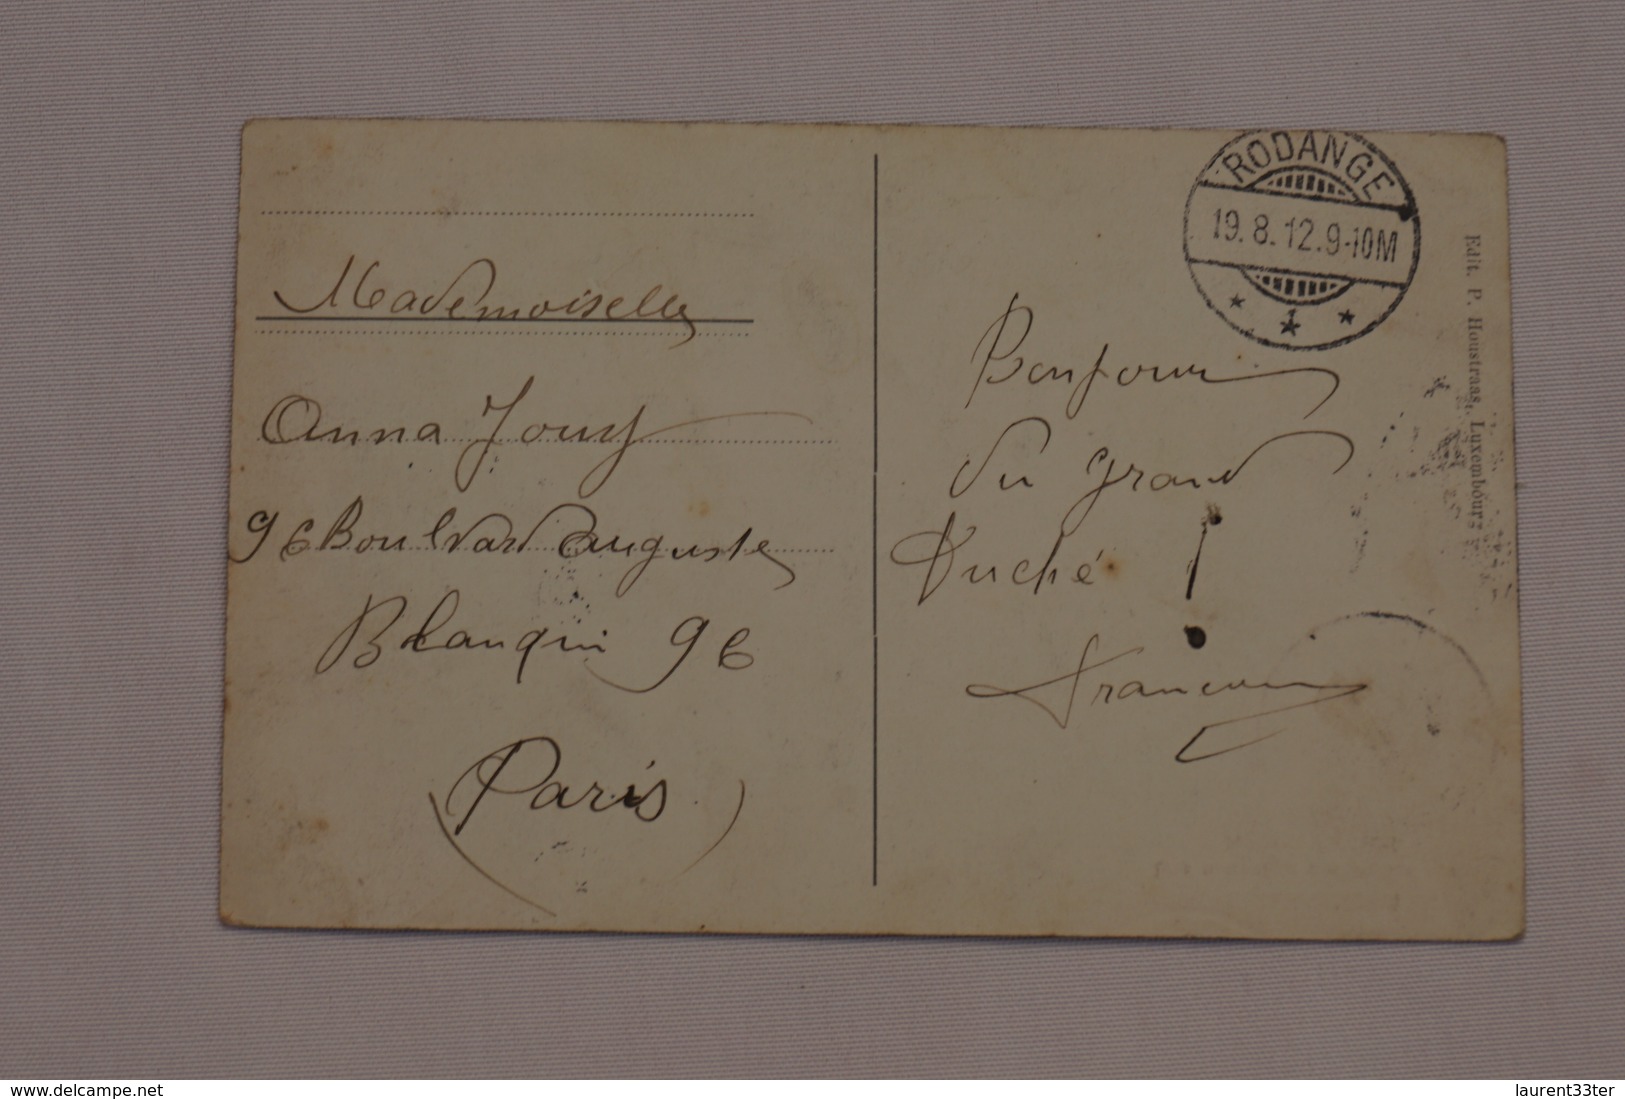 Mademoiselle
Anna Jouy
96 Boulvard Auguste
Blanqui 96
(Paris)
RODANGE
19.8.12.9-10M
1
Bonjour
du grand
Duché !
Edit. P. Houstraas, Luxembourg
www.delcampe.net
laurent33ter